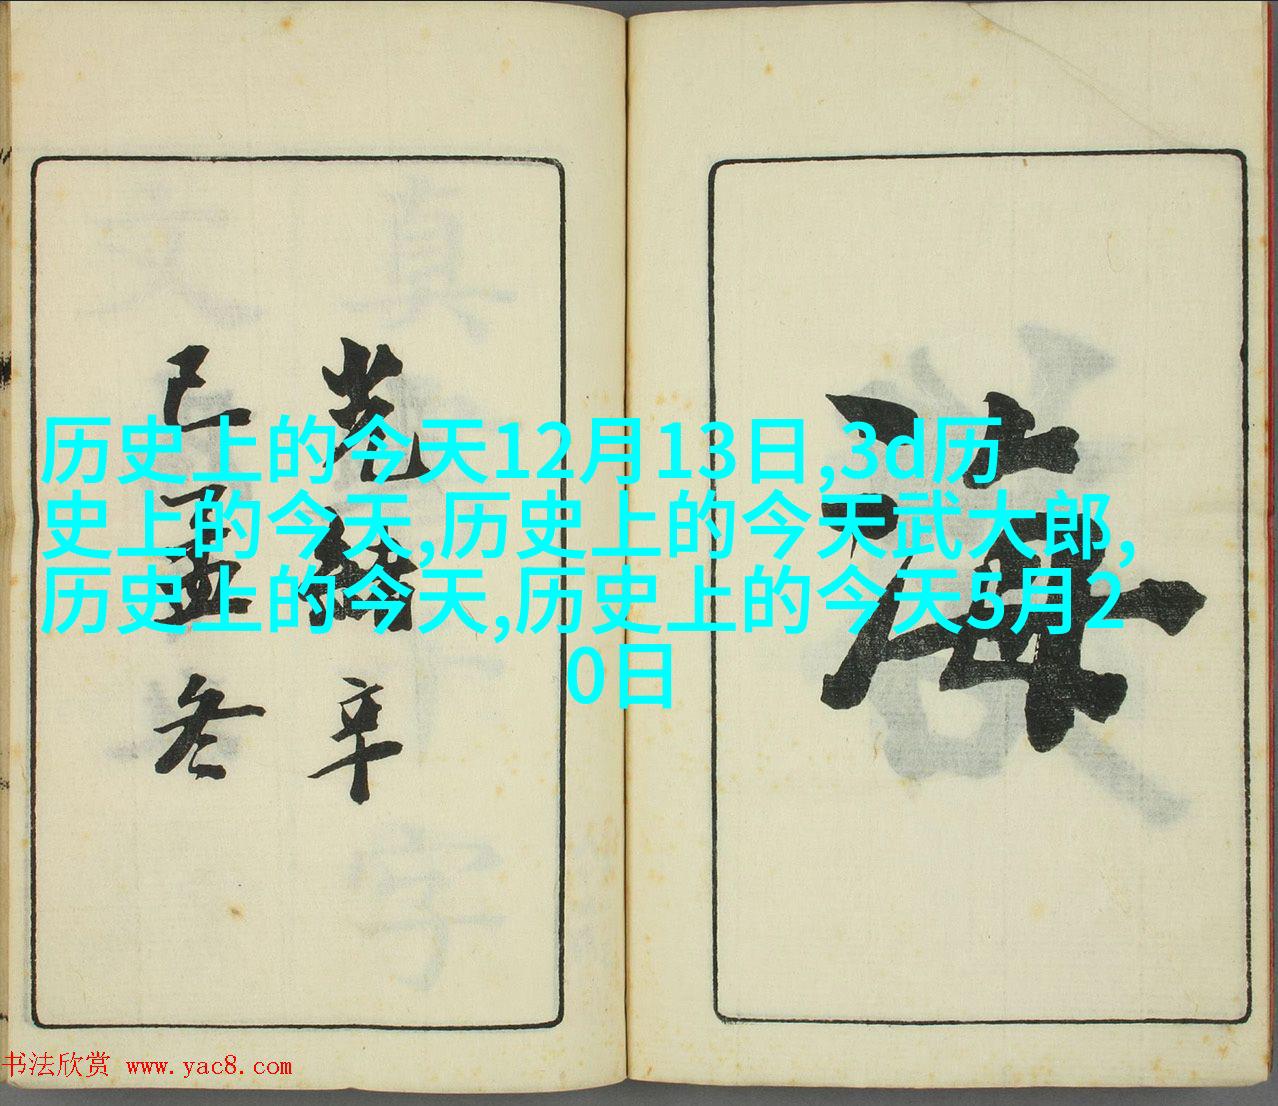 历史上的今天12月13日,3d历
史上的今天,历史上的今天武大郎,
历史上的今天,历史上的今天5月2
0日
海
光緒辛
巳孟冬
书法欣赏 www.yac8.com